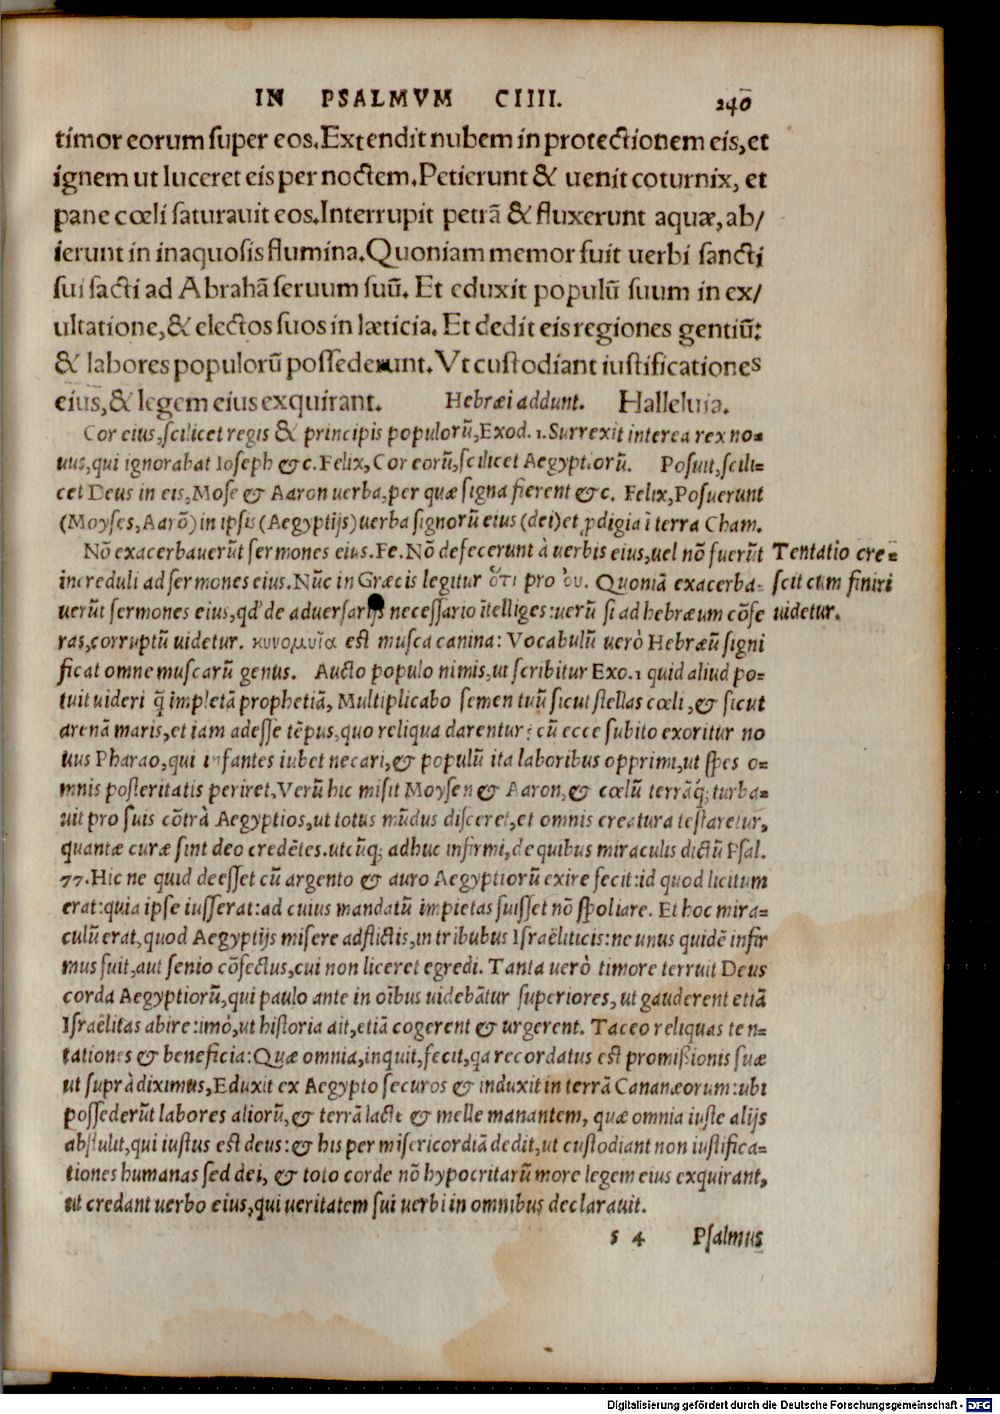 IN PSALMVM CIIII. 240
timor eorum super eos. Extendit nubem in protectionem eis, et
ignem ut luceret eis per noctem. Petierunt & uenit coturnix, et
pane cœli saturauit eos. Interrupit petrã & fluxerunt aquæ, ab/
ierunt in inaquosis flumina. Quoniam memor fuit uerbi sancti
sui sacti ad Abrahã seruum suũ. Et eduxit populũ suum in ex/
ultatione, & electos suos in læticia. Et dedit eis regiones gentiũ:
& labores populorũ possederunt. Vt custodiant iustificationes
eius, & legem eius exquirant. Hebræi addunt. Halleluia.
Cor eius, scilicet regis & principis populorũ, Exod. 1. Surrexit interea rex no=
uus, qui ignorabat Ioseph & c. Felix, Cor eorũ, scilicet Aegyptiorũ. Posuit, scili=
cet Deus in eis, Mose & Aaron uerba, per quæ signa fierent & c. Felix, Posuerunt
(Moyses, Aarõ) in ipsis (Aegyptijs) uerba signorũ eius (dei) et ꝓdigia ĩ terra Cham.
Nõ exacerbauerũt sermones eius. Fe. Nõ defecerunt à uerbis eius, uel nõ fuerũt
increduli ad sermones eius. Nũc in Græcis legitur ὅτι pro ὀυ. Quoniã exacerba=
uerũt sermones eius, qd' de aduersarijs necessario ĩtelliges: uerũ si ad hebræum cõfe
ras, corruptũ uidetur. κυνομυῖα est musca canina: Vocabulũ uerò Hebræũ signi
ficat omne muscarũ genus. Aucto populo nimis, ut scribitur Exo. 1 quid aliud po=
tuit uideri q̃ impletã prophetiã, Multiplicabo semen tuũ sicut stellas cœli, & sicut
arenã maris, et iam adesse tẽpus, quo reliqua darentur: cũ ecce subito exoritur no
uus Pharao, qui infantes iubet necari, & populũ ita laboribus opprimi, ut spes o=
mnis posteritatis periret, Verũ hic misit Moysen & Aaron, & cœlũ terrãq́; turba=
uit pro suis cõtrà Aegyptios, ut totus mũdus disceret, et omnis creatura testaretur,
quantæ curæ sint deo credẽtes. utcũq; adhuc infirmi, de quibus miraculis dictũ Psal.
77. Hic ne quid deesset cũ argento & auro Aegyptiorũ exire fecit: id quod licitum
erat: quia ipse iusserat: ad cuius mandatũ impietas fuisset nõ spoliare. Et hoc mira=
culũ erat, quod Aegyptijs misere adflictis, in tribubus Israëliticis: ne unus quidẽ infir
mus fuit, aut senio cõfectus, cui non liceret egredi. Tanta uerò timore terruit Deus
corda Aegyptiorũ, qui paulo ante in oĩbus uidebãtur superiores, ut gauderent etiã
Israëlitas abire: imò, ut historia ait, etiã cogerent & urgerent. Taceo reliquas ten=
tationes & beneficia: Quæ omnia, inquit, fecit, qa recordatus est promissionis suæ
ut suprà diximus, Eduxit ex Aegypto securos & induxit in terrã Cananæorum: ubi
possederũt labores aliorũ, & terrã lacte & melle manantem, quæ omnia iuste alijs
abstulit, qui iustus est deus: & his per misericordiã dedit, ut custodiant non iustifica=
tiones humanas sed dei, & toto corde nõ hypocritarũ more legem eius exquirant,
ut credant uerbo eius, qui ueritatem sui uerbi in omnibus declarauit.
s 4 Psalmus
Tentatio cre=
scit cum finiri
uidetur.
Digitalisierung gefördert durch die Deutsche Forschungsgemeinschaft - DFG